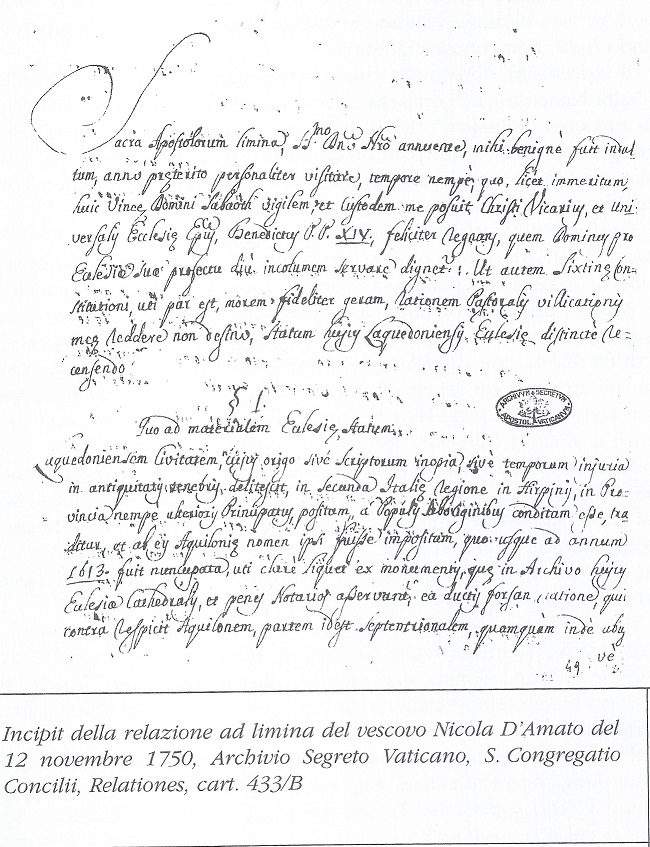 Sacra Apostolorum limina, SS.mo Dno Nro annuente, mihi benignè fuit indul
tum, anno praeterito personaliter visitare, tempore nempè, quo, licet immeritum
huic Vineę Domini Sabaoth vigilem, et Custodem me posuit Christi Vicarius, et Uni
versalis Ecclesię Epũs, Benedictus P.P. XIV, feliciter regnans, quem Dominus pro
Ecclesiæ suæ profectu diù incolumem servare dignet.: Ut autem Sixtinę Con=
stitutioni, uti par est, morem fideliter geram, rationem Pastoralis villicationis
meę reddere non desino, statum hujus Laquedoniensis Ecclesię distinctè re=
censendo
§ I.
Quo ad materialem Ecclesię statum.
Laquedoniensem Civitatem, cujus origo sivè Scriptorum inopia, sivè temporum injuria
in antiquitatis tenebris delitescit, in secunda Italię Regione in Hirpinis, in Pro=
vincia nempe ulterioris Principatus, positam, a Populis Aboriginibus conditam esse, tra
ditur, et ab eis Aquilonię nomen ipsi fuisse impositum, quo usque ad annum
1613. fuit nuncupata, uti clare liquet ex monumentis, quę in Archivo hujus
Ecclesiæ Cathedralis, et penes Notarios asservant, ea ductis forsan ratione, quia
contra respicit Aquilonem, partem idest septentrionalem, quamquam inde
vè
49
ARCHIVVM SECRETVM
APOSTOL. VATICANVM
Incipit della relazione ad limina del vescovo Nicola D'Amato del
12 novembre 1750, Archivio Segreto Vaticano, S. Congregatio
Concilii, Relationes, cart. 433/B